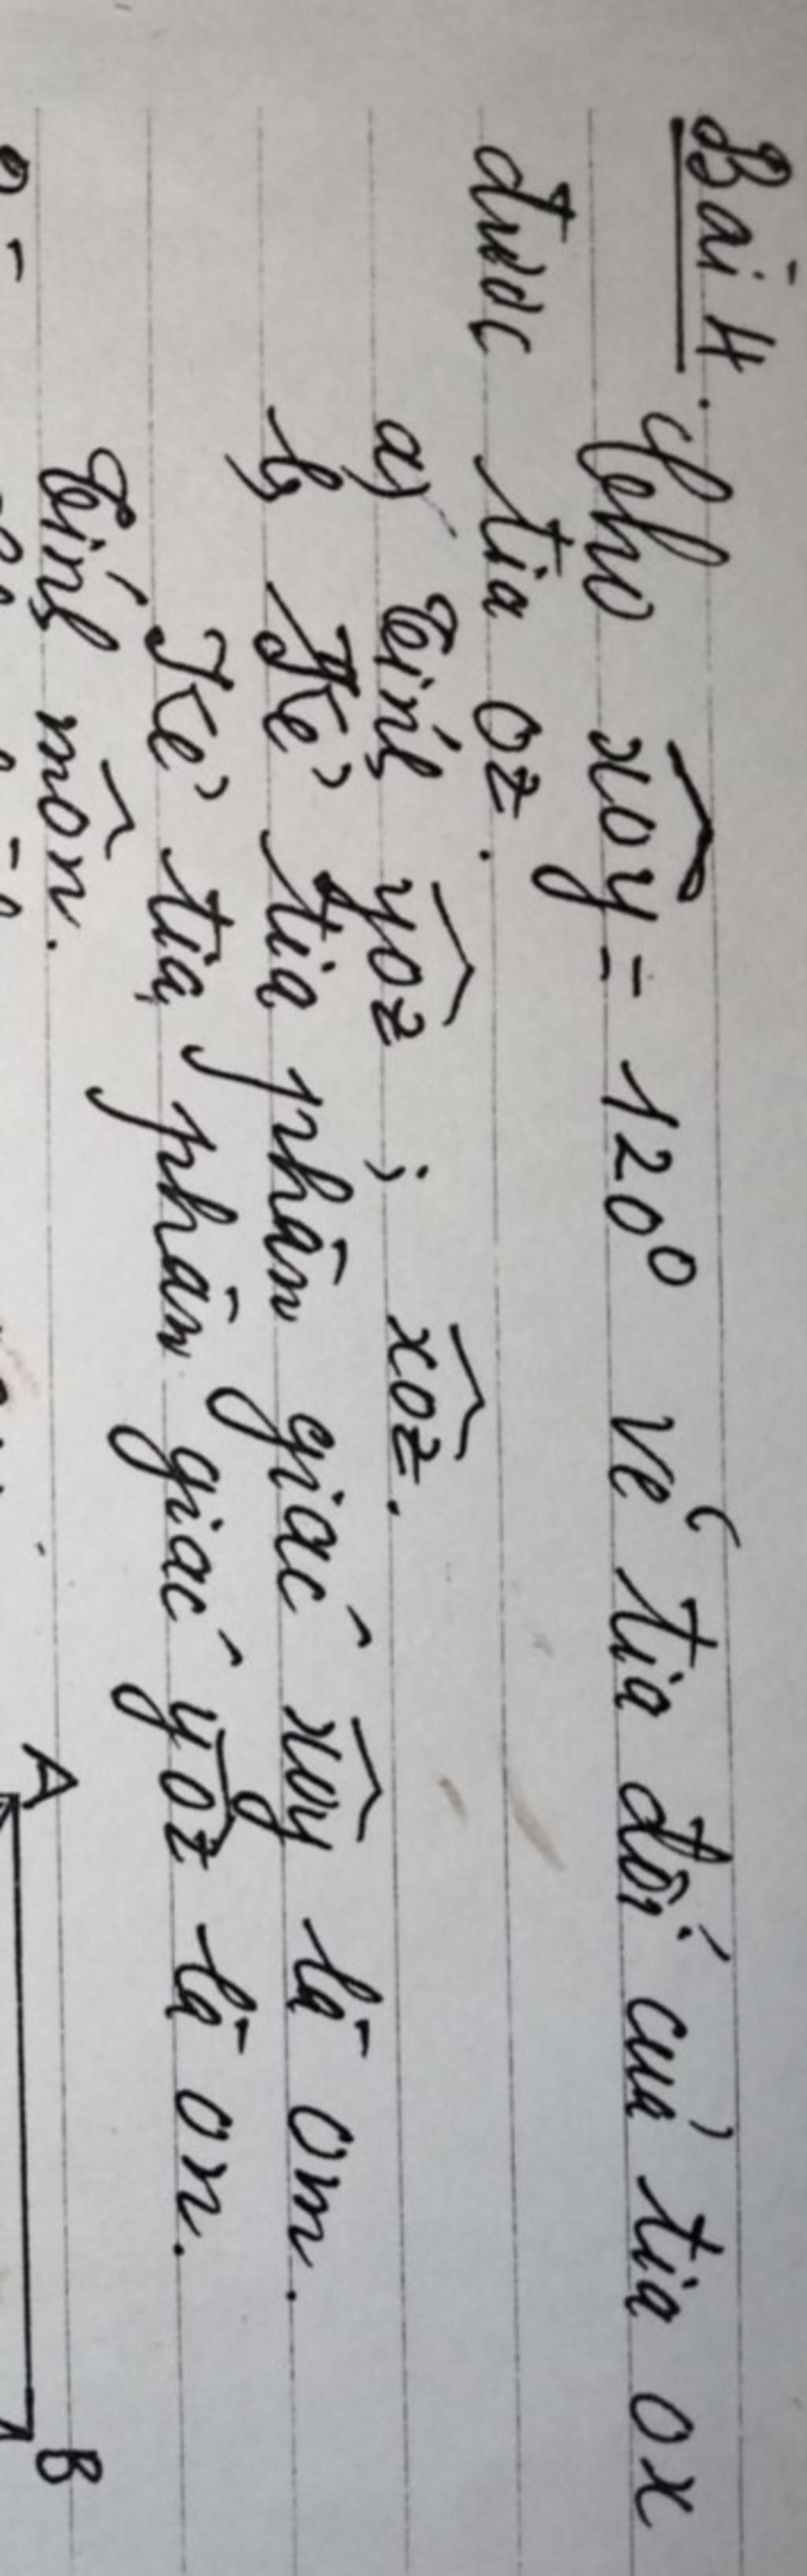 Bài 4. Cho xoy = 120⁰ vẽ tia đối của tia ox
được tia oz.
a) Tính yoz ; xoz.
b, Kẻ tia phân giác xoy là om.
Kẻ tia phân giác yoz là on.
Tính môn.
A B